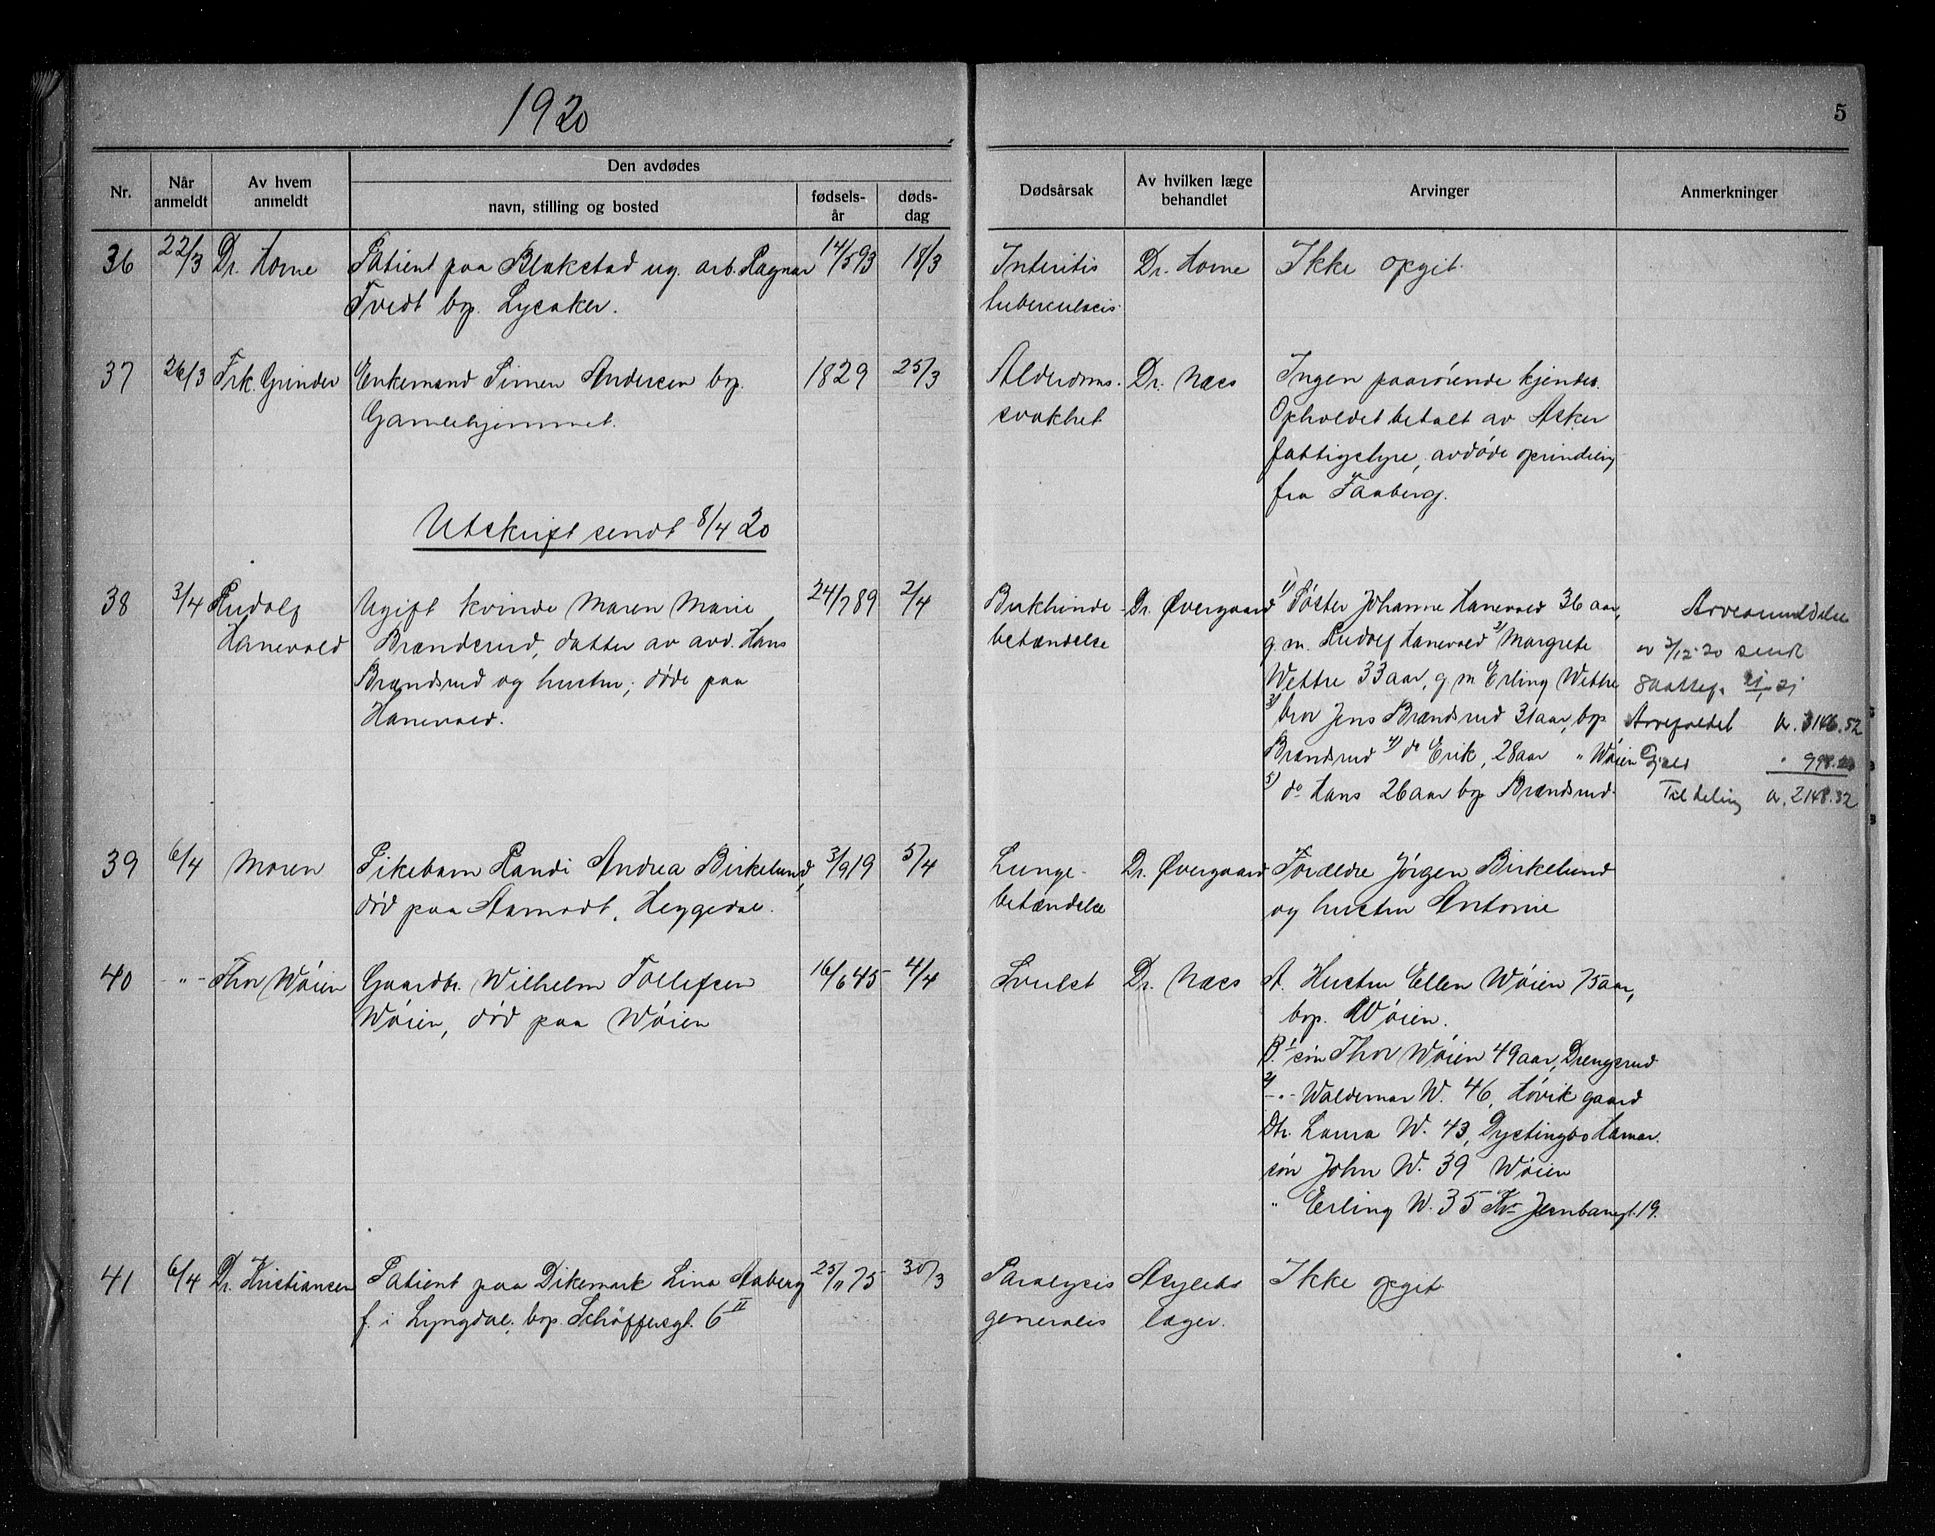 1920
5
Nr.
Når anmeldt
Av hvem anmeldt
Den avdødes
navn, stilling og bosted
fødselsår
dødsdag
Dødsårsak
Av hvilken læge behandlet
Arvinger
Anmerkninger
36 22/3 Dr. Horne Patient paa Blakstad ug. arb. Ragnar 14/5 93 18/3 Interitis Dr. Horne Ikke opgit.
Tvedt bop. Lysaker. tuberculosis
37 26/3 Frk. Grinder Enkemand Simen Andersen bop. 1829 25/3 Alderdoms- Dr. Næss Ingen paarørende kjendes.
Gamlehjemmet. svakhet Opholdet betalt av Asker
fattigstyre, avdøde oprindelig
fra Faaberg.
Utskrift sendt 8/4 20
38 3/4 Rudolf Ugift kvinde Maren Marie 24/7 89 2/4 Bukhinde- Dr. Øvergaard 1) Søster Johanne Hanevold 36 aar, Arveanmeldelse
Hanevold Brændsrud, datter av avd. Hans betændelse g.m. Rudolf Hanevold 2) Margrete av 7/12-20 sendt
Brændsrud og hustru; døde paa Wettre 33 aar, g.m Erling Wettre
Hanevold. 3) bror Jens Brændsrud 31 aar, bop Arvefaldet kr. 3146.52
Brændsrud 4) do Erik, 28 aar " Wøien Gjæld " 998.20
5) do Hans 26 aar bop Brændsrud. Til deling kr. 2148.32
39 6/4 Moren Pikebarn Randi Andrea Birkelund, 3/9 19 5/4 Lunge- Dr. Øvergaard Forældre Jørgen Birkelund
død paa Aamodt, Heggedal. betændelse og hustru Antonie
40 -"- Thor Wøien Gaardbr. Wilhelm Tollefsen 16/6 45 4/4 Svulst Dr. Næss A. Hustru Ellen Wøien 75 aar,
Wøien, død paa Wøien bop. Wøien.
B. 1 søn Thor Wøien 49 aar, Drengsrud
2) -"- Waldemar W. 46, Høvik gaard
Dtr. Laura W. 43, Dystingbo Hamar.
søn John W. 39 Wøien
" Erling W. 35 Kr. Jernbanegt. 19.
41 6/4 Dr. Kristiansen Patient paa Dikemark Lina Aaberg 25/11 75 30/3 Paralysis Asylets Ikke opgit
f. i Lyngdal, bop. Schøffersgt. 6 II generalis læger.